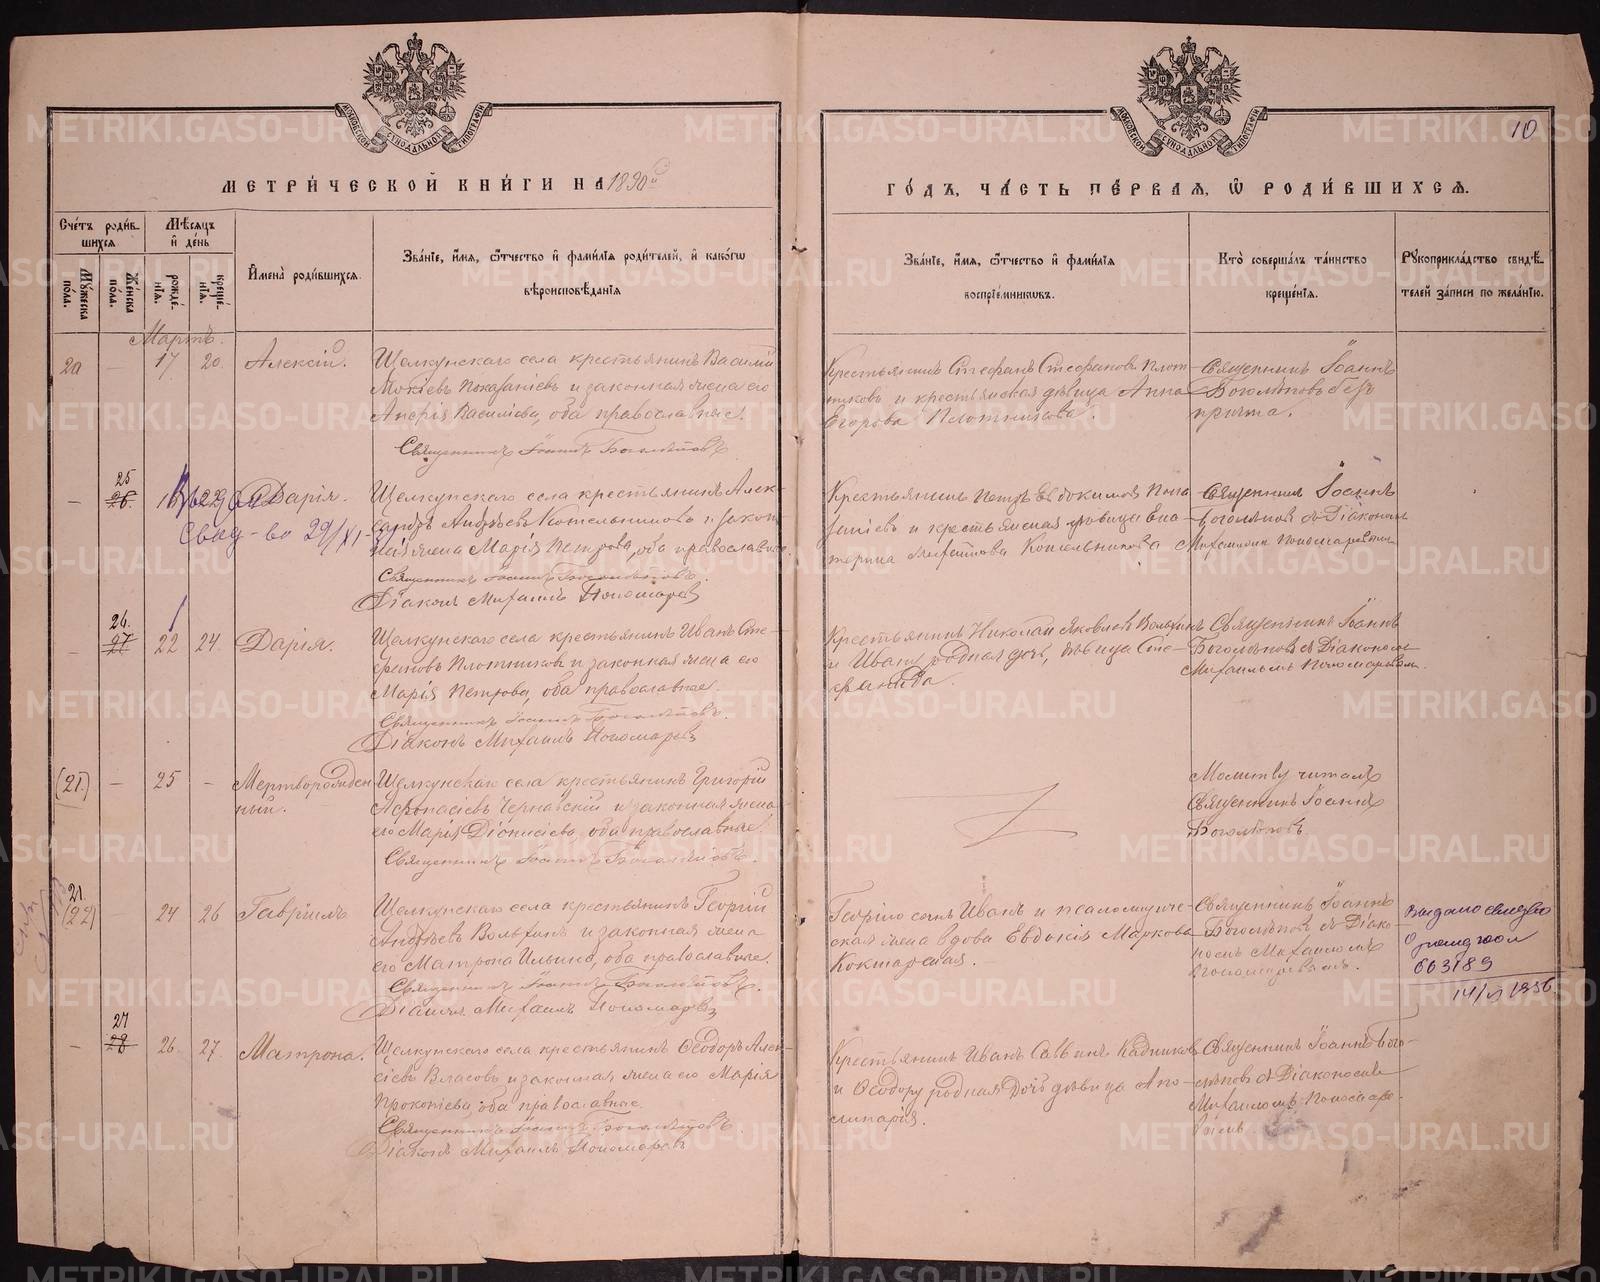 МЕТРИ́ЧЕСКОЙ КНИ́ГИ НА 1890й
ГО́ДЪ, ЧА́СТЬ ПЕ́РВАЯ, Ѡ РОДИ́ВШИХСѦ.
10
Сче́тъ роди́вшихсѧ
Мѣ́сѧцъ и҆ де́нь
Мꙋ́жеска по́ла.
Же́нска по́ла.
рожде́нїѧ.
креще́нїѧ.
И҆мена̀ роди́вшихсѧ.
Зва́нїе, и҆́мѧ, ѻ҆́тчество и҆ фами́лїѧ роди́телей, и҆ како́гѡ
вѣроисповѣ́данїѧ
Зва́нїе, и҆́мѧ, ѻ҆́тчество и҆ фами́лїѧ
воспрїе́мникѡвъ.
Кто̀ соверша́лъ та́инство
креще́нїѧ.
Рꙋкоприкла́дство свидѣ́телей за́писи по жела́нїю.
Мартъ.
20 — 17 20 Алексій.
Щелкунскаго села крестьянинъ Василій
Мокіевъ и законная жена его
Васильева, оба православные.
Священникъ Іоаннъ Боголѣповъ
Крестьянинъ Стефанъ Стефановъ Плотниковъ и крестьянская дѣвица Анна
Егорова Плотникова.
Священникъ Іоаннъ
Боголѣповъ безъ
причта.
— 25 26. 22 Дарія.
Свид-во 29/XI-
Щелкунскаго села крестьянинъ Александръ Андреевъ Котельниковъ и законная жена Марія Петрова, оба православные.
Священникъ Іоаннъ Боголѣповъ.
Діаконъ Михаилъ Пономаревъ
Крестьянинъ Петръ Евдокимовъ
и крестьянская дѣвица Екатерина Котельникова
Священникъ Іоаннъ
Боголѣповъ съ Діакономъ
Михаиломъ Пономаревымъ
— 26. 27 22 24. Дарія.
Щелкунскаго села крестьянинъ Иванъ
Плотниковъ и законная жена его
Марія Петрова, оба православные.
Священникъ Іоаннъ Боголѣповъ.
Діаконъ Михаилъ Пономаревъ
Крестьянинъ Николай Яковлевъ
и Ивану родная дочь, дѣвица Стефанида.
Священникъ Іоаннъ
Боголѣповъ съ Діакономъ
Михаиломъ Пономаревымъ.
(21.) — 25 — Мертворожденный.
Щелкунскаго села крестьянинъ Григорій
Афонасіевъ Чернавскій и законная жена
его Марія Діонисіева, оба православные.
Священникъ Іоаннъ Боголѣповъ.
Молитву читалъ
Священникъ Іоаннъ
Боголѣповъ.
21. (22) 24 26 Гавріилъ
Щелкунскаго села крестьянинъ Георгій
Андреевъ и законная жена
его Матрона Ильина, оба православные.
Священникъ Іоаннъ Боголѣповъ.
Діаконъ Михаилъ Пономаревъ
Георгію сынъ Иванъ и псаломщическая жена вдова Евдокія Маркова
Кокшарская.
Священникъ Іоаннъ
Боголѣповъ съ Діакономъ Михаиломъ
Пономаревымъ.
Выдано
603189
14/VI 1956
— 27 28 26 27. Матрона.
Щелкунскаго села крестьянинъ Ѳеодоръ Алексіевъ Власовъ и законная жена его Марія
Прокопіева, оба православные.
Священникъ Іоаннъ Боголѣповъ.
Діаконъ Михаилъ Пономаревъ
Крестьянинъ Иванъ Саввинъ Кадниковъ
и Ѳеодору родная дочь дѣвица Аполинарія.
Священникъ Іоаннъ Боголѣповъ съ Діакономъ
Михаиломъ Пономаревымъ
METRIKI.GASO-URAL.RU